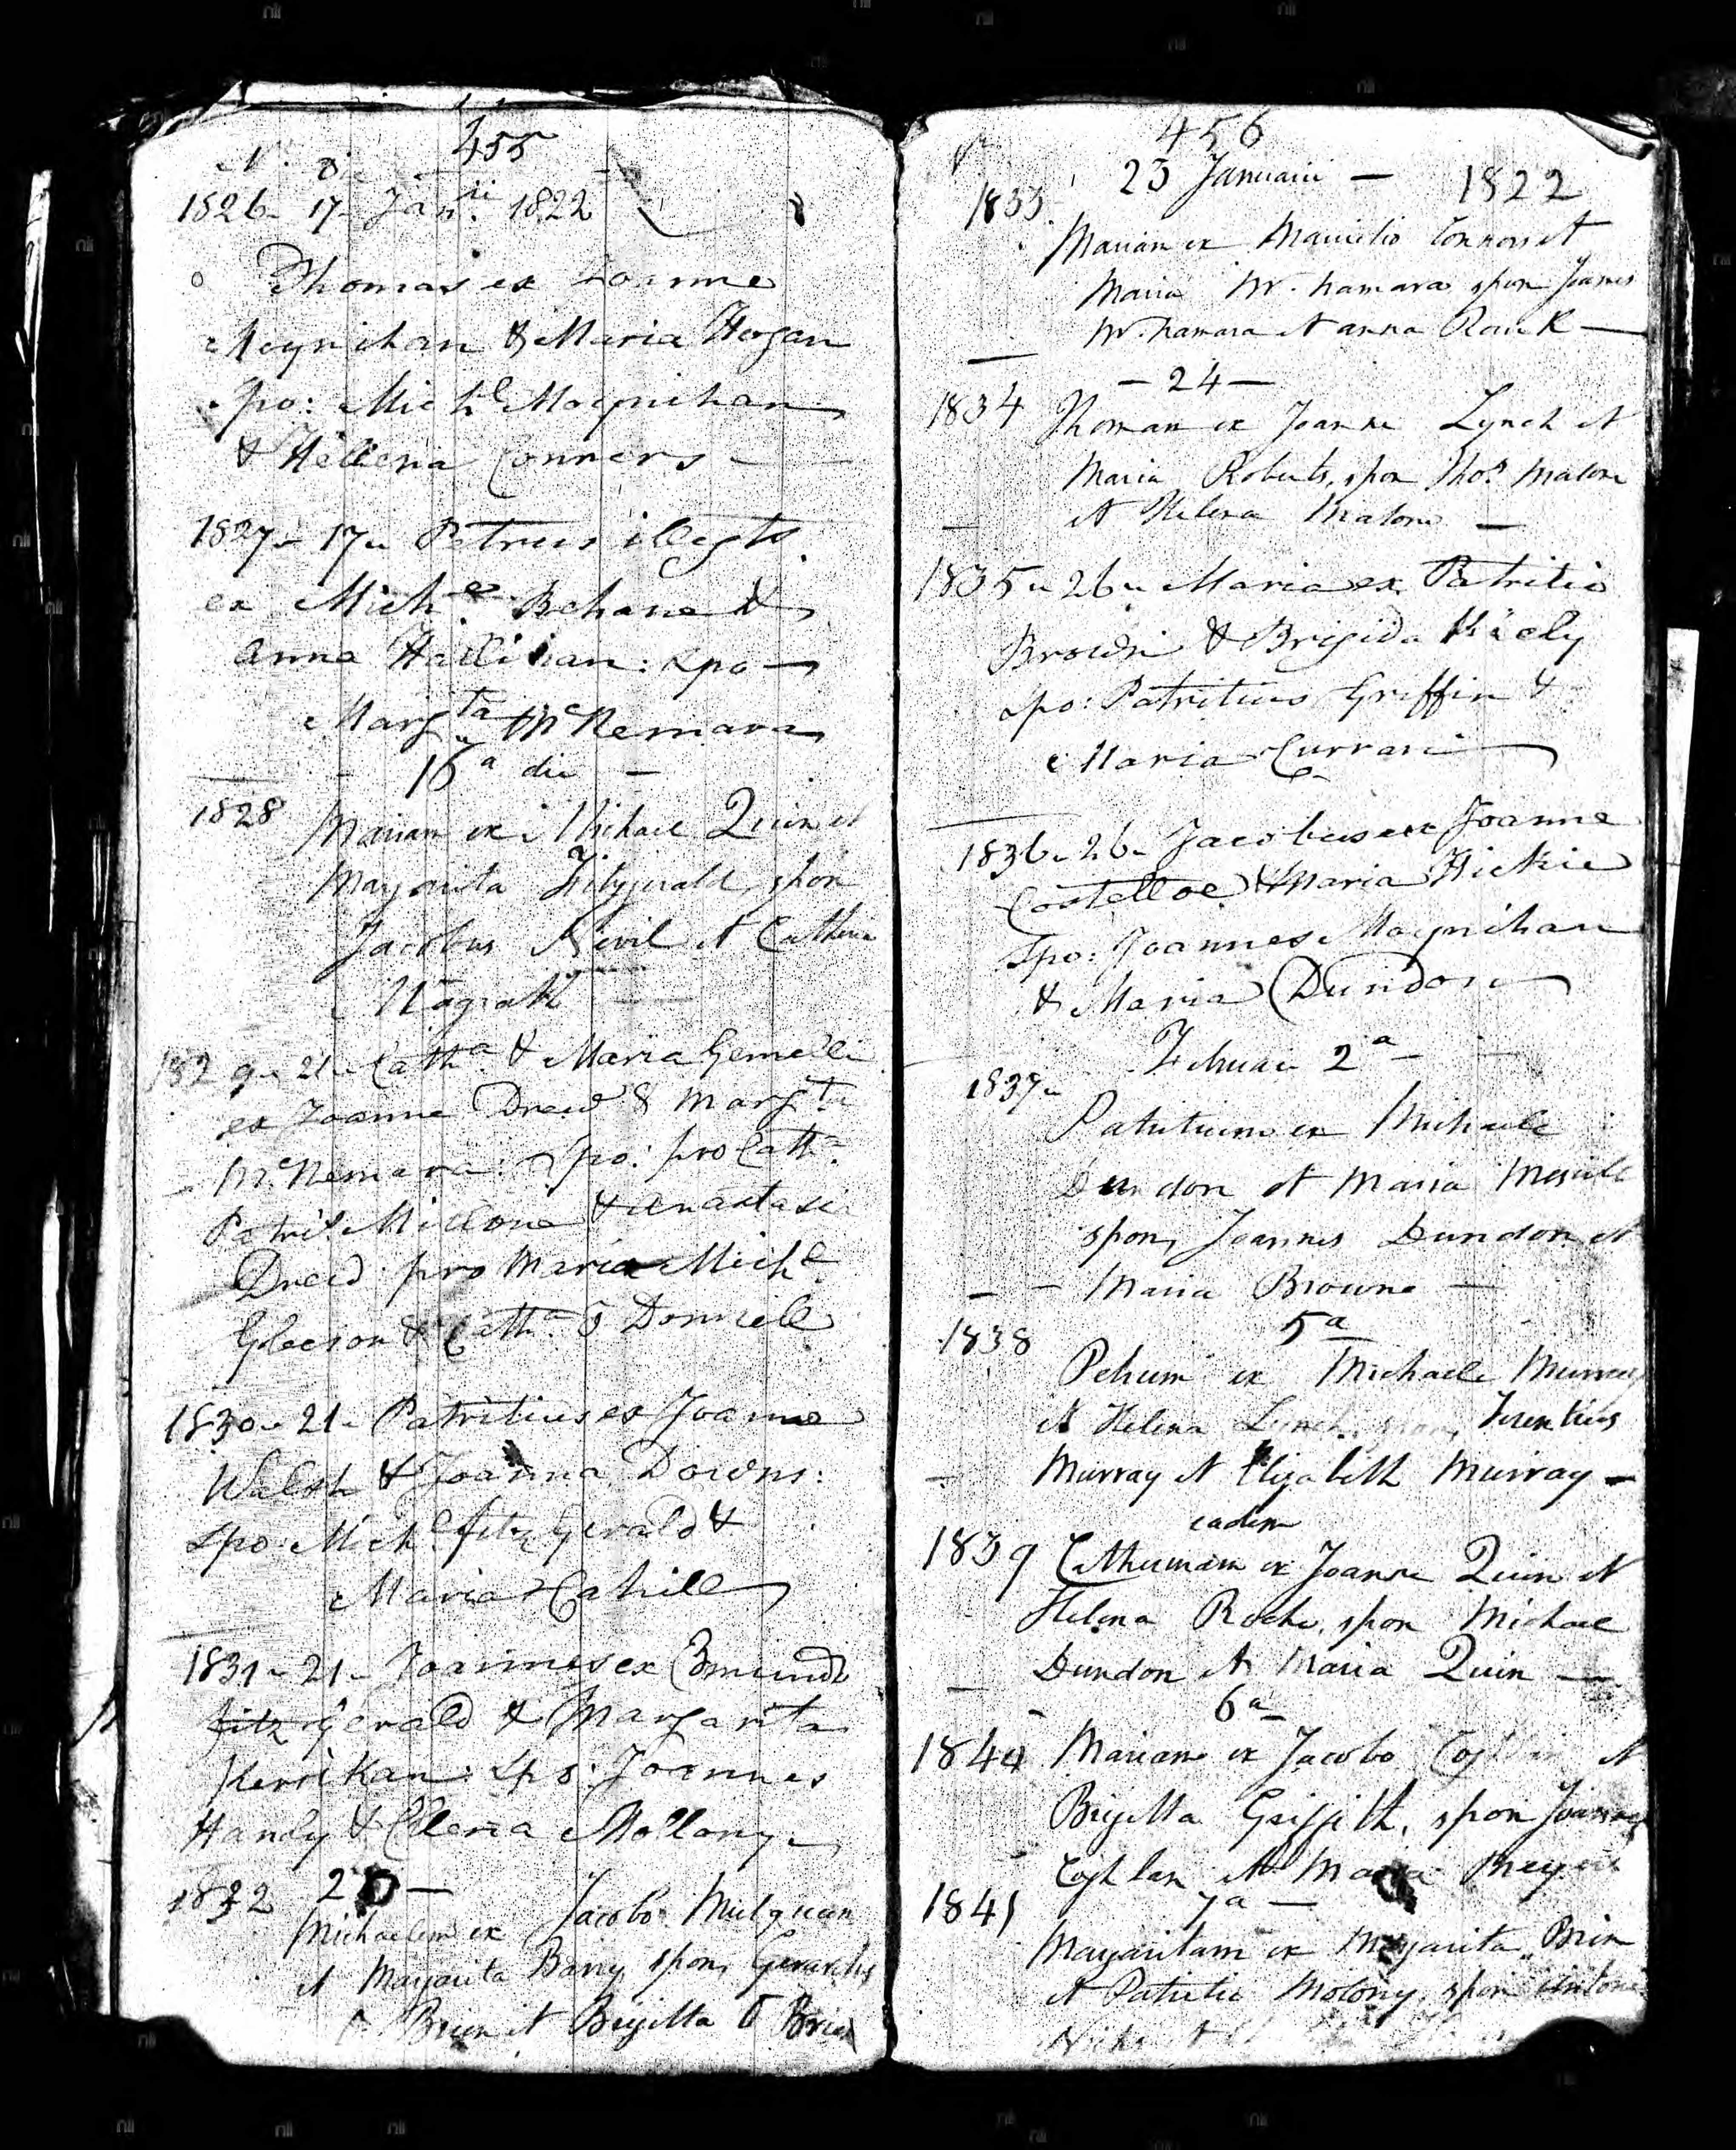 455
N. D.
1826 - 17 - Jan.ii 1822
Thomas ex Joanne
Moynihan & Maria Hogan
spo: Mich.l Moynihan
& Hellena Conners -
1827 - 17 - Petrus illegts.
ex Mich.e Behane &
Anna Hallinan: spo -
Marg.ta McNemara
16a die -
1828 Mariam ex Michaele Quin et
Margarita Fitzgerald, spon
Jacobus Nevil et Catherina
Magrath
1829 - 21 - Cath.a & Maria Gemelli
ex Joanne Drew & Marg.ta
McNemara: Spo: pro Cath.a
Patri.s Millone & Anastasia
Drew pro Maria Mich.l
Gleeson & Cath.a O Donnell
1830 - 21 - Patritius ex Joanne
Walsh & Joanna Downs:
spo: Mich.l fitz Gerald &
Maria Cahill
1831 - 21 - Joannes ex Edmundo
fitz gerald & Margarita
Kerrikan: Spo: Joannes
Handy & Elena Mollony
1832 20 -
Michaelem ex Jacobo Mulquean
et Margarita Barry, spon, Gerardus
O Brien et Brigitta O Brien
456
23 Januarii - 1822
1833
Mariam ex Mauritio Connors et
Maria Mc.namara spon Joannes
Mc.namara et anna
- 24 -
1834 Thomam ex Joanne Lynch et
Maria Roberts, spon Thos. Malone
et Helena Malone -
1835 - 26 - Maria ex Patritio
Brown & Brigida Kiely
spo: Patritius Griffin &
Maria Curran
1836 - 26 - Jacobus ex Joanne
Costelloe & Maria Hickie
Spo: Joannes Moynihan
& Maria Dundon
Februarii 2a
1837 -
Patritium ex Michaele
Dundon et Maria
spon, Joannes Dundon et
Maria Browne -
5a
1838
Petrum ex Michaele Murray
et Helena Lynch, spon, Terentius
Murray et Elizabeth Murray -
eadem
1839 Catherinam ex Joanne Quin et
Helena Roche, spon Michael
Dundon et Maria Quin -
6a
1840 Mariam ex Jacobo Coghlan et
Brigitta Griffith, spon Joannes
Coghlan et Maria
7a -
1841
Margaritam ex Margarita Brien
et Patritio Molony, spon